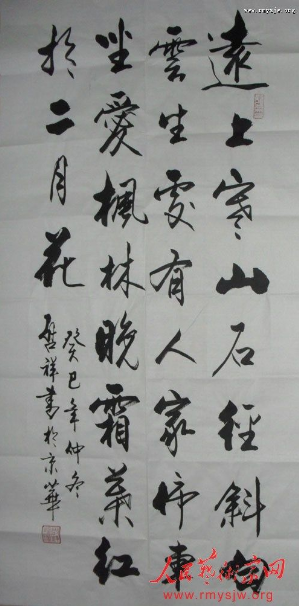 www.rmysjw.org
遠上寒山石徑斜白
雲生處有人家停車
坐愛楓林晚霜葉紅
於二月花
癸巳年仲冬
啓祥書於京華
人民艺术家网
www.rmysjw.org